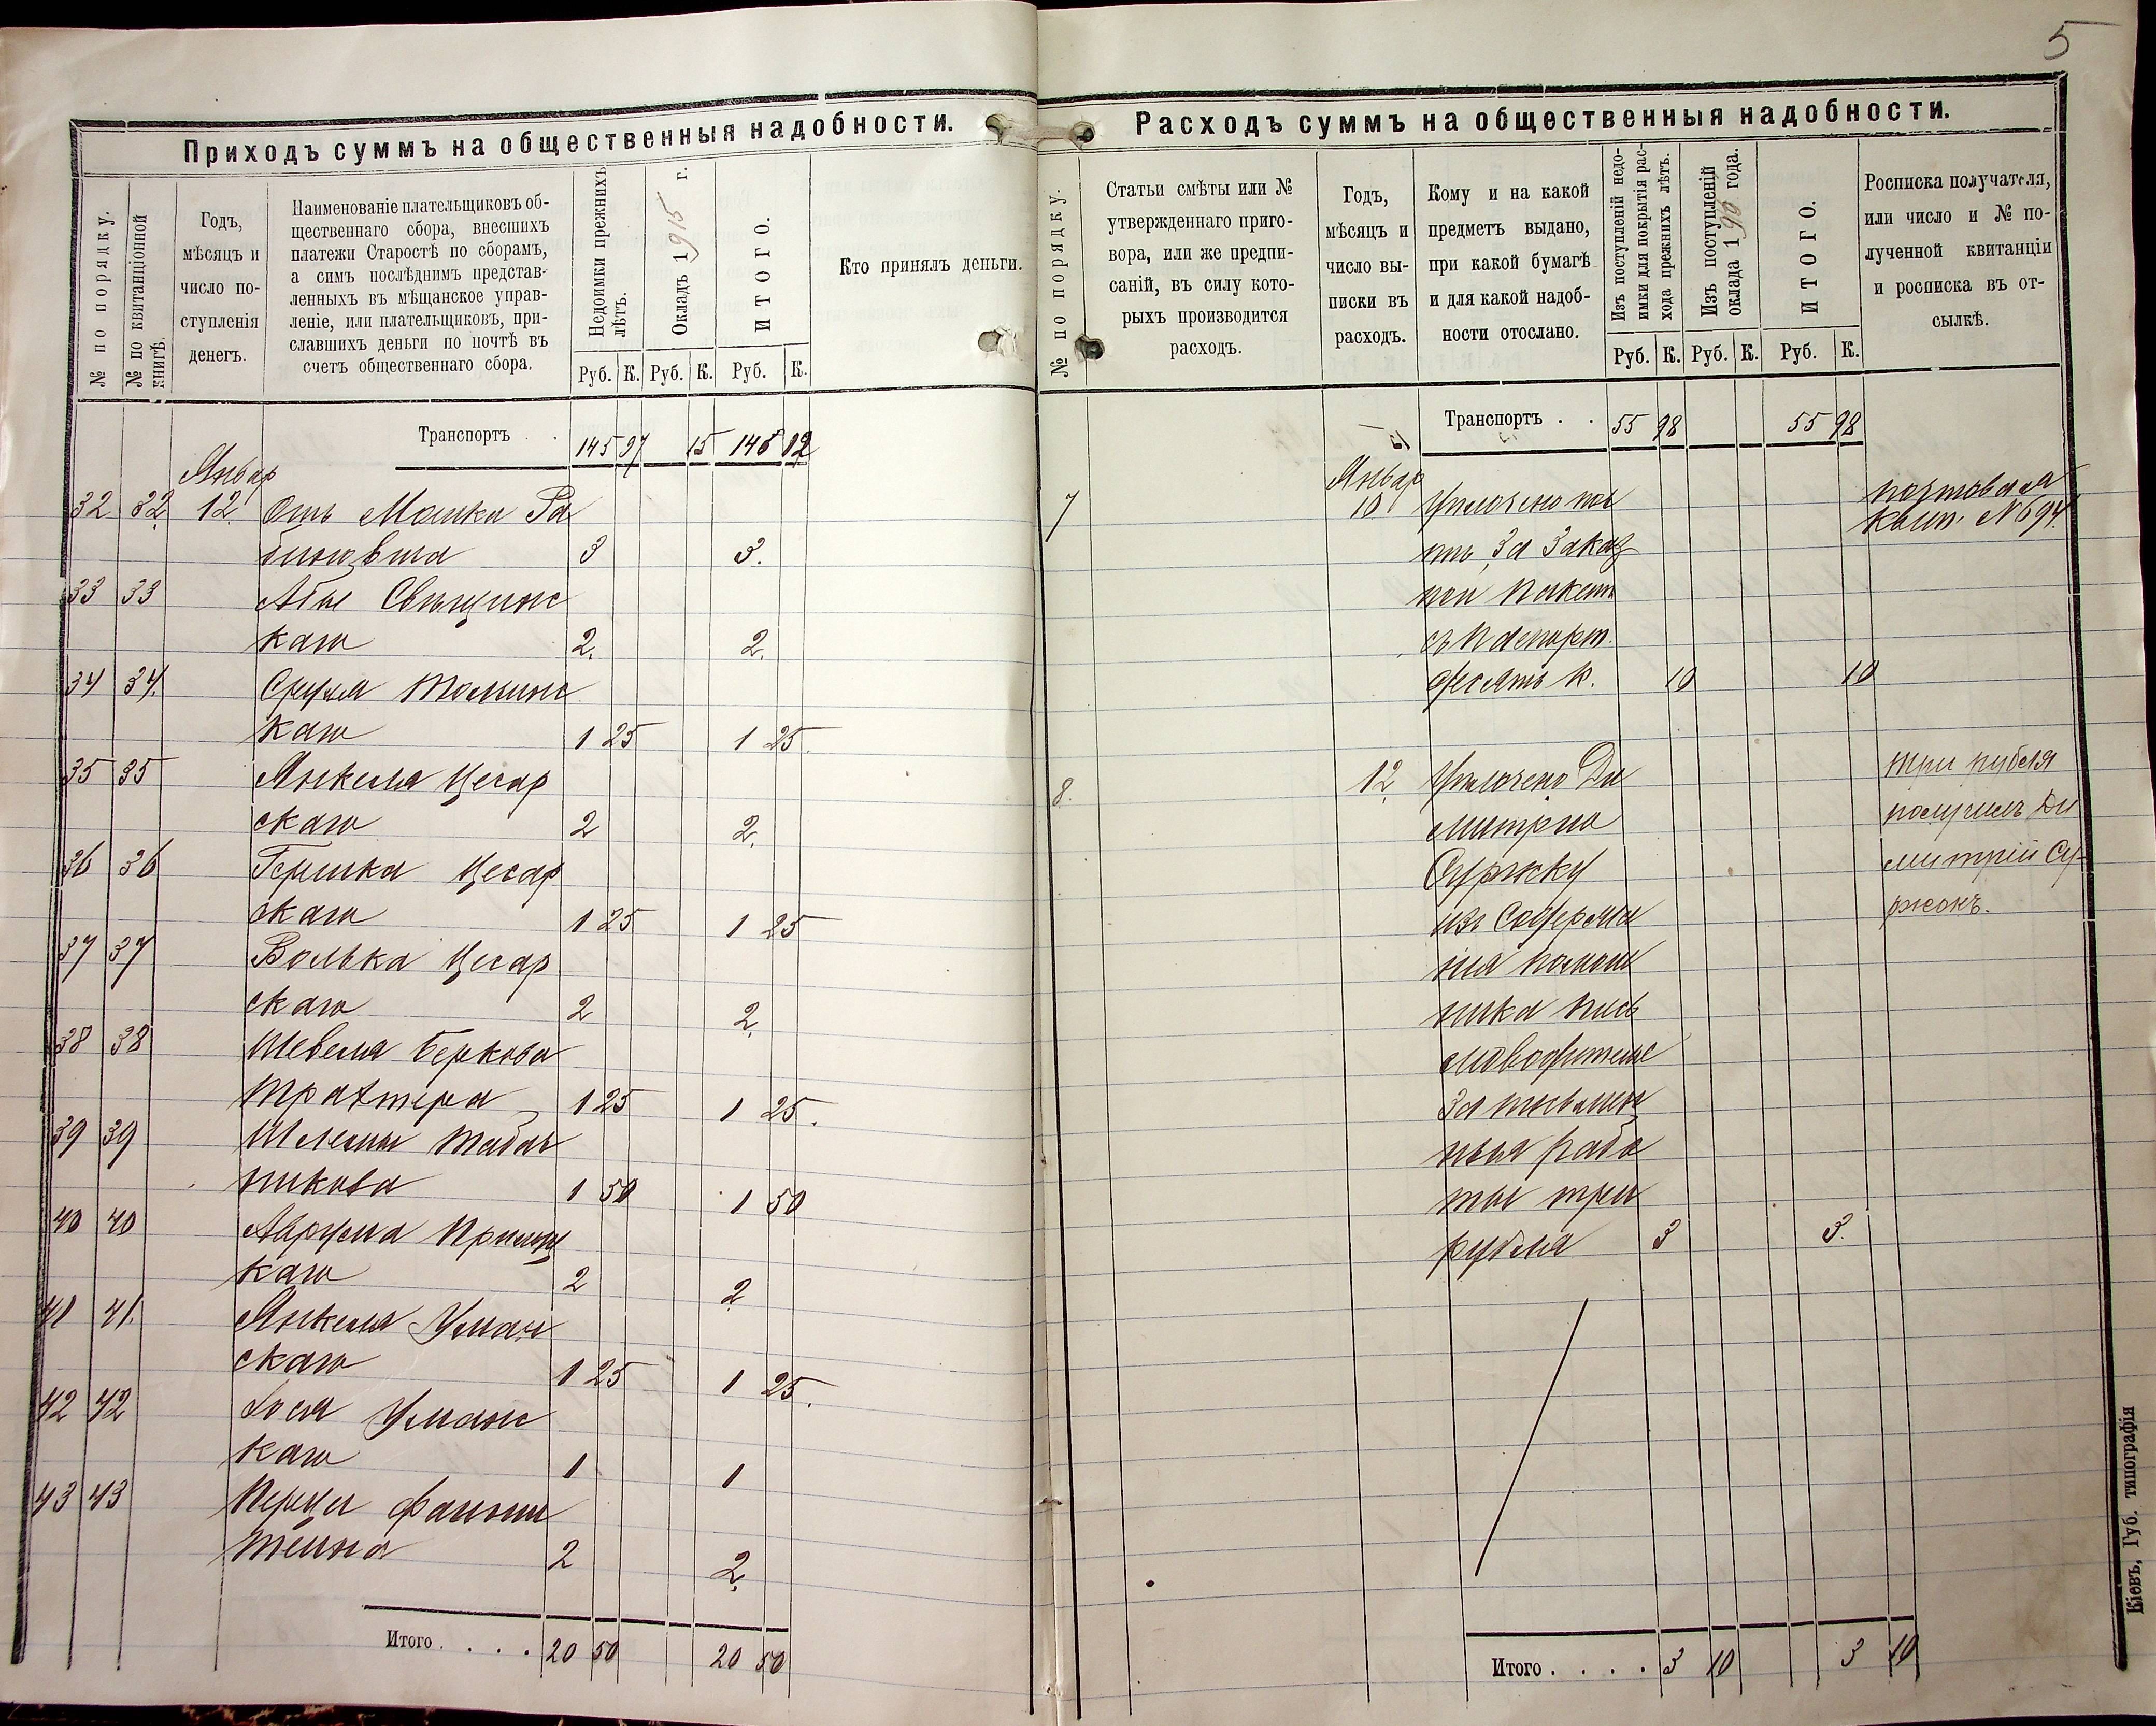 5
Приходъ суммъ на общественныя надобности.
№ по порядку.
№ по квитанціонной
книгѣ.
Годъ,
мѣсяцъ и
число по-
ступленія
денегъ.
Наименованіе плательщиковъ об-
щественнаго сбора, внесшихъ
платежи Старостѣ по сборамъ,
а симъ послѣднимъ представ-
ленныхъ въ мѣщанское управ-
леніе, или плательщиковъ, при-
славшихъ деньги по почтѣ въ
счетъ общественнаго сбора.
Недоимки прежнихъ
лѣтъ.
Окладъ 1915 г.
ИТОГО.
Кто принялъ деньги.
Руб. К. Руб. К. Руб. К.
Транспортъ . . 145 97 15 146 12
Январ
32 32 12. Отъ Мошки Ра
3 3.
33 33 Абы Свѣщинс
каго 2. 2.
34 34. Сруля Толминс
каго 1 25 1 25.
35 35 Янкеля Цесар
скаго 2 2.
36 36 Гершка Цесар
скаго 1 25 1 25
37 37 Волька Цесар
скаго 2 2.
38 38 Шевеля Беркова
Трахтера 1 25 1 25.
39 39 Шлемы Табач
никова 1 50 1 50
40 40 Аврума Прилуц
каго 2 2
41 41. Янкеля Уман
скаго 1 25 1 25.
42 42 Іося Уманс
каго 1 1
43 43 Перца Файнш
тейна 2 2.
Итого . . . . 20 50 20 50
Расходъ суммъ на общественныя надобности.
№ по порядку.
Статьи смѣты или №
утвержденнаго приго-
вора, или же предпи-
саній, въ силу кото-
рыхъ производится
расходъ.
Годъ,
мѣсяцъ и
число вы-
писки въ
расходъ.
Кому и на какой
предметъ выдано,
при какой бумагѣ
и для какой надоб-
ности отослано.
Изъ поступленій недо-
имки для покрытія рас-
хода прежнихъ лѣтъ.
Изъ поступленій
оклада 19 года.
ИТОГО.
Росписка получателя,
или число и № по-
лученной квитанціи
и росписка въ от-
сылкѣ.
Руб. К. Руб. К. Руб. К.
Транспортъ . . 55 98 55 98
Январ
7 10 Уплочено поч почтовая
квит. № 694.
тѣ за заказ
ной пакетъ
съ паспорт.
десять к. 10 10
8. 12. Уплочено Ди три рубля
митрію получилъ Ди
Суржку митрій Су-
изъ содержа ржокъ.
нія помощ
ника пись
моводителя
за письмен
ныя рабо
ты три
рубля 3 3.
Итого . . . . 3 10 3 10
Кіевъ, Губ. типографія